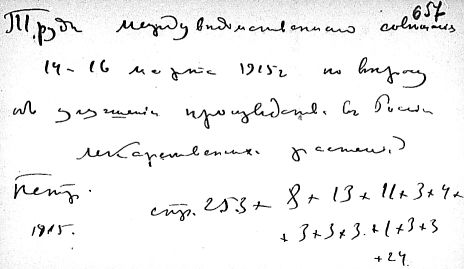 657
Труды междуведомственного совещания
14-16 марта 1915 г по вопросу
об улучшении производства в России
лекарственных растений
Петр.
стр. 253 + 8 + 13 + 11 + 3 + 4 +
1915.
+ 3 + 3 + 3 + 1 + 3 + 3
+ 24